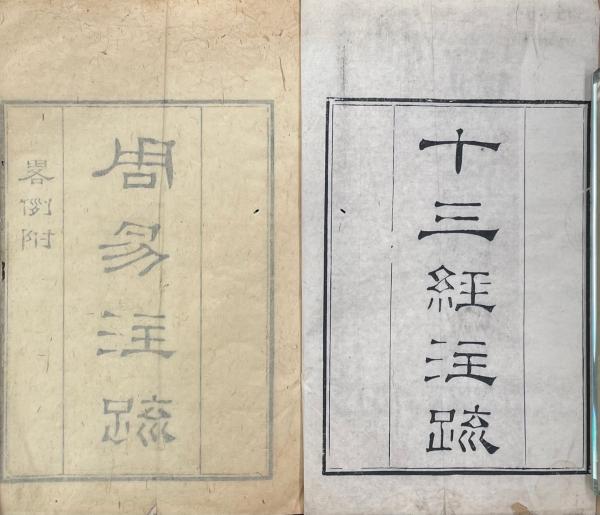 十三經注疏
周易注疏
畧例附